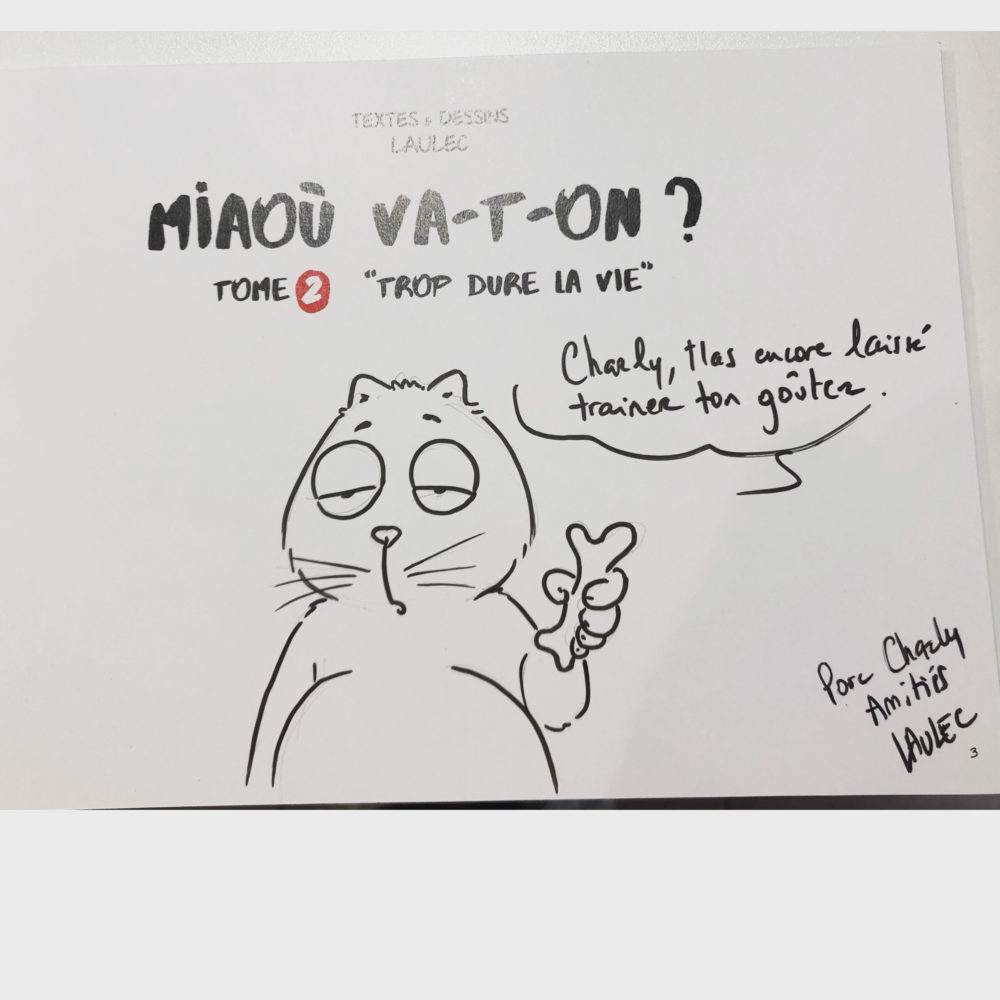 TEXTES & DESSINS
LAULEC
MIAOÙ VA-T-ON ?
TOME 2 "TROP DURE LA VIE"
Charly, t'as encore laissé
trainer ton goûter.
Pour Charly
Amitiés
LAULEC
3